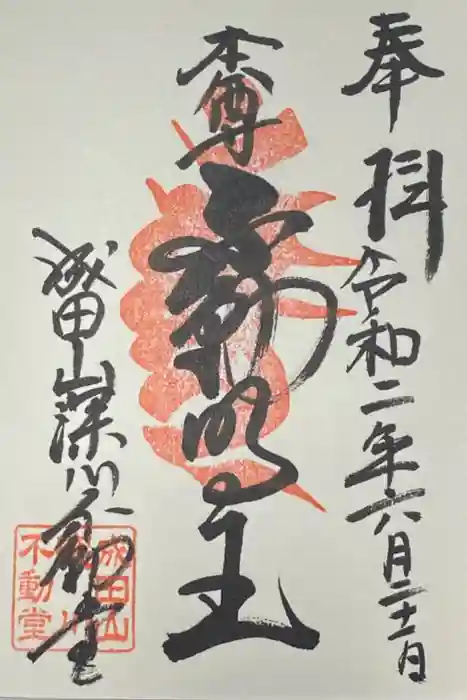 奉拝
令和二年六月二十一日
本尊
不動明王
成田山深川不動堂
成田山
深川
不動堂